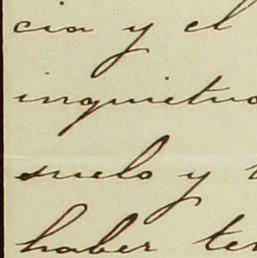 cia y el
inquietud
suelo y
haber ten